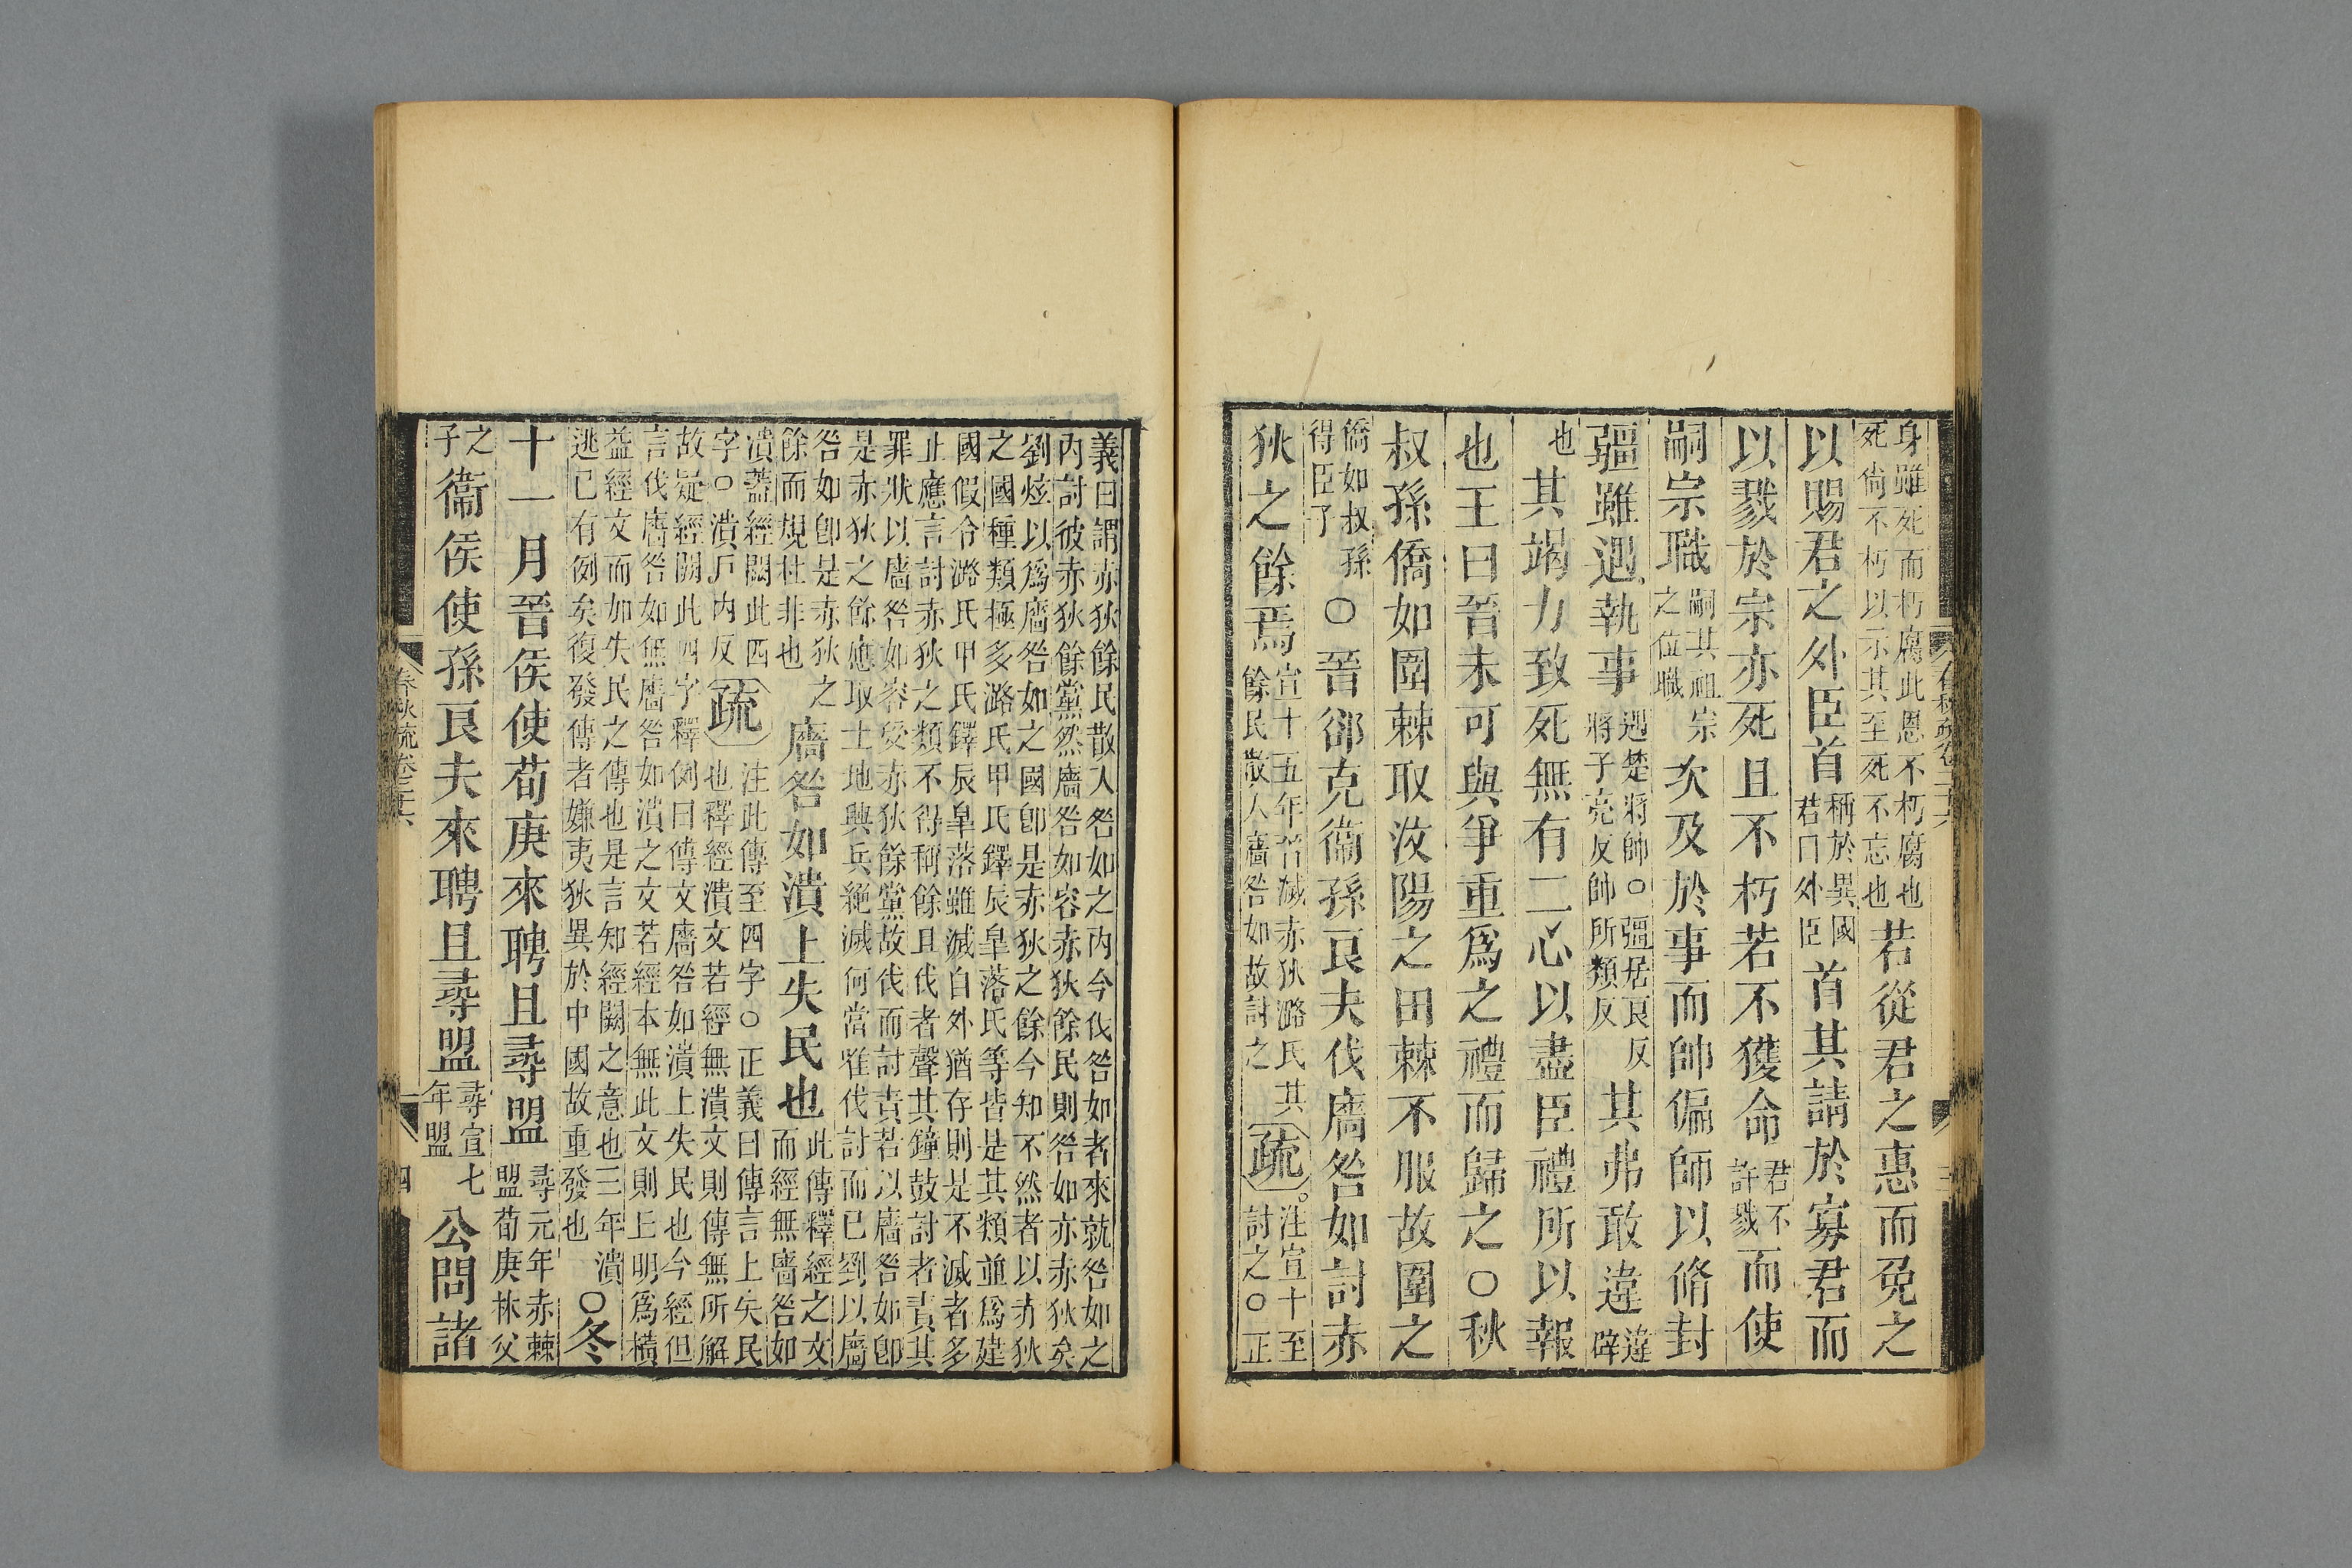 身雖死而朽腐此恩不朽腐也
死尚不朽以示其至死不忘也若從君之惠而免之
以賜君之外臣首稱於異國君曰外臣首其請於寡君而
以戮於宗亦死且不朽若不獲命君不許戮而使
嗣宗職嗣其祖宗之位職次及於事而帥偏師以脩封
疆雖遇執事遇楚將帥○疆居良反將子亮反帥所類反其弗敢違違辟
也其竭力致死無有二心以盡臣禮所以報
也王曰晉未可與爭重爲之禮而歸之○秋
叔孫僑如圍棘取汶陽之田棘不服故圍之
僑如叔孫得臣子○晉郤克衞孫良夫伐廧咎如討赤
狄之餘焉宣十五年晉滅赤狄潞氏其餘民散入廧咎如故討之疏注宣十至討之○正
義曰謂赤狄餘民散入咎如之内今伐咎如者來就咎如之
内討彼赤狄餘黨然廧咎如容赤狄餘民則咎如亦赤狄矣
劉炫以爲廧咎如之國卽是赤狄之餘今知不然者以赤狄
之國種類極多潞氏甲氏鐸辰皐落氏等皆是其類並爲建
國假令潞氏甲氏鐸辰皐落雖滅自外猶存則是不滅者多
止應言討赤狄之類不得稱餘且伐者聲其鐘鼓討者責其
罪狀以廧咎如容受赤狄餘黨故伐而討責若以廧咎如卽
是赤狄之餘應取土地興兵絶滅何當唯伐討而已劉以廧
咎如卽是赤狄之餘而規杜非也廧咎如潰上失民也此傳釋經之文而經無廧咎如
潰蓋經闕此四字○潰戸内反疏注此傳至四字○正義曰傳言上失民也釋經潰文若經無潰文則傳無所解
故疑經闕此四字釋例曰傳文廧咎如潰上失民也今經但
言伐廧咎如無廧咎如潰之文若經本無此文則上明爲橫
益經文而加失民之傳也是言知經闕之意也三年潰
逃已有例矣復發傳者嫌夷狄異於中國故重發也○冬
十一月晉侯使荀庚來聘且尋盟尋元年赤棘盟荀庚林父
之子衞侯使孫良夫來聘且尋盟尋宣七年盟公問諸
春秋疏卷二十六 四